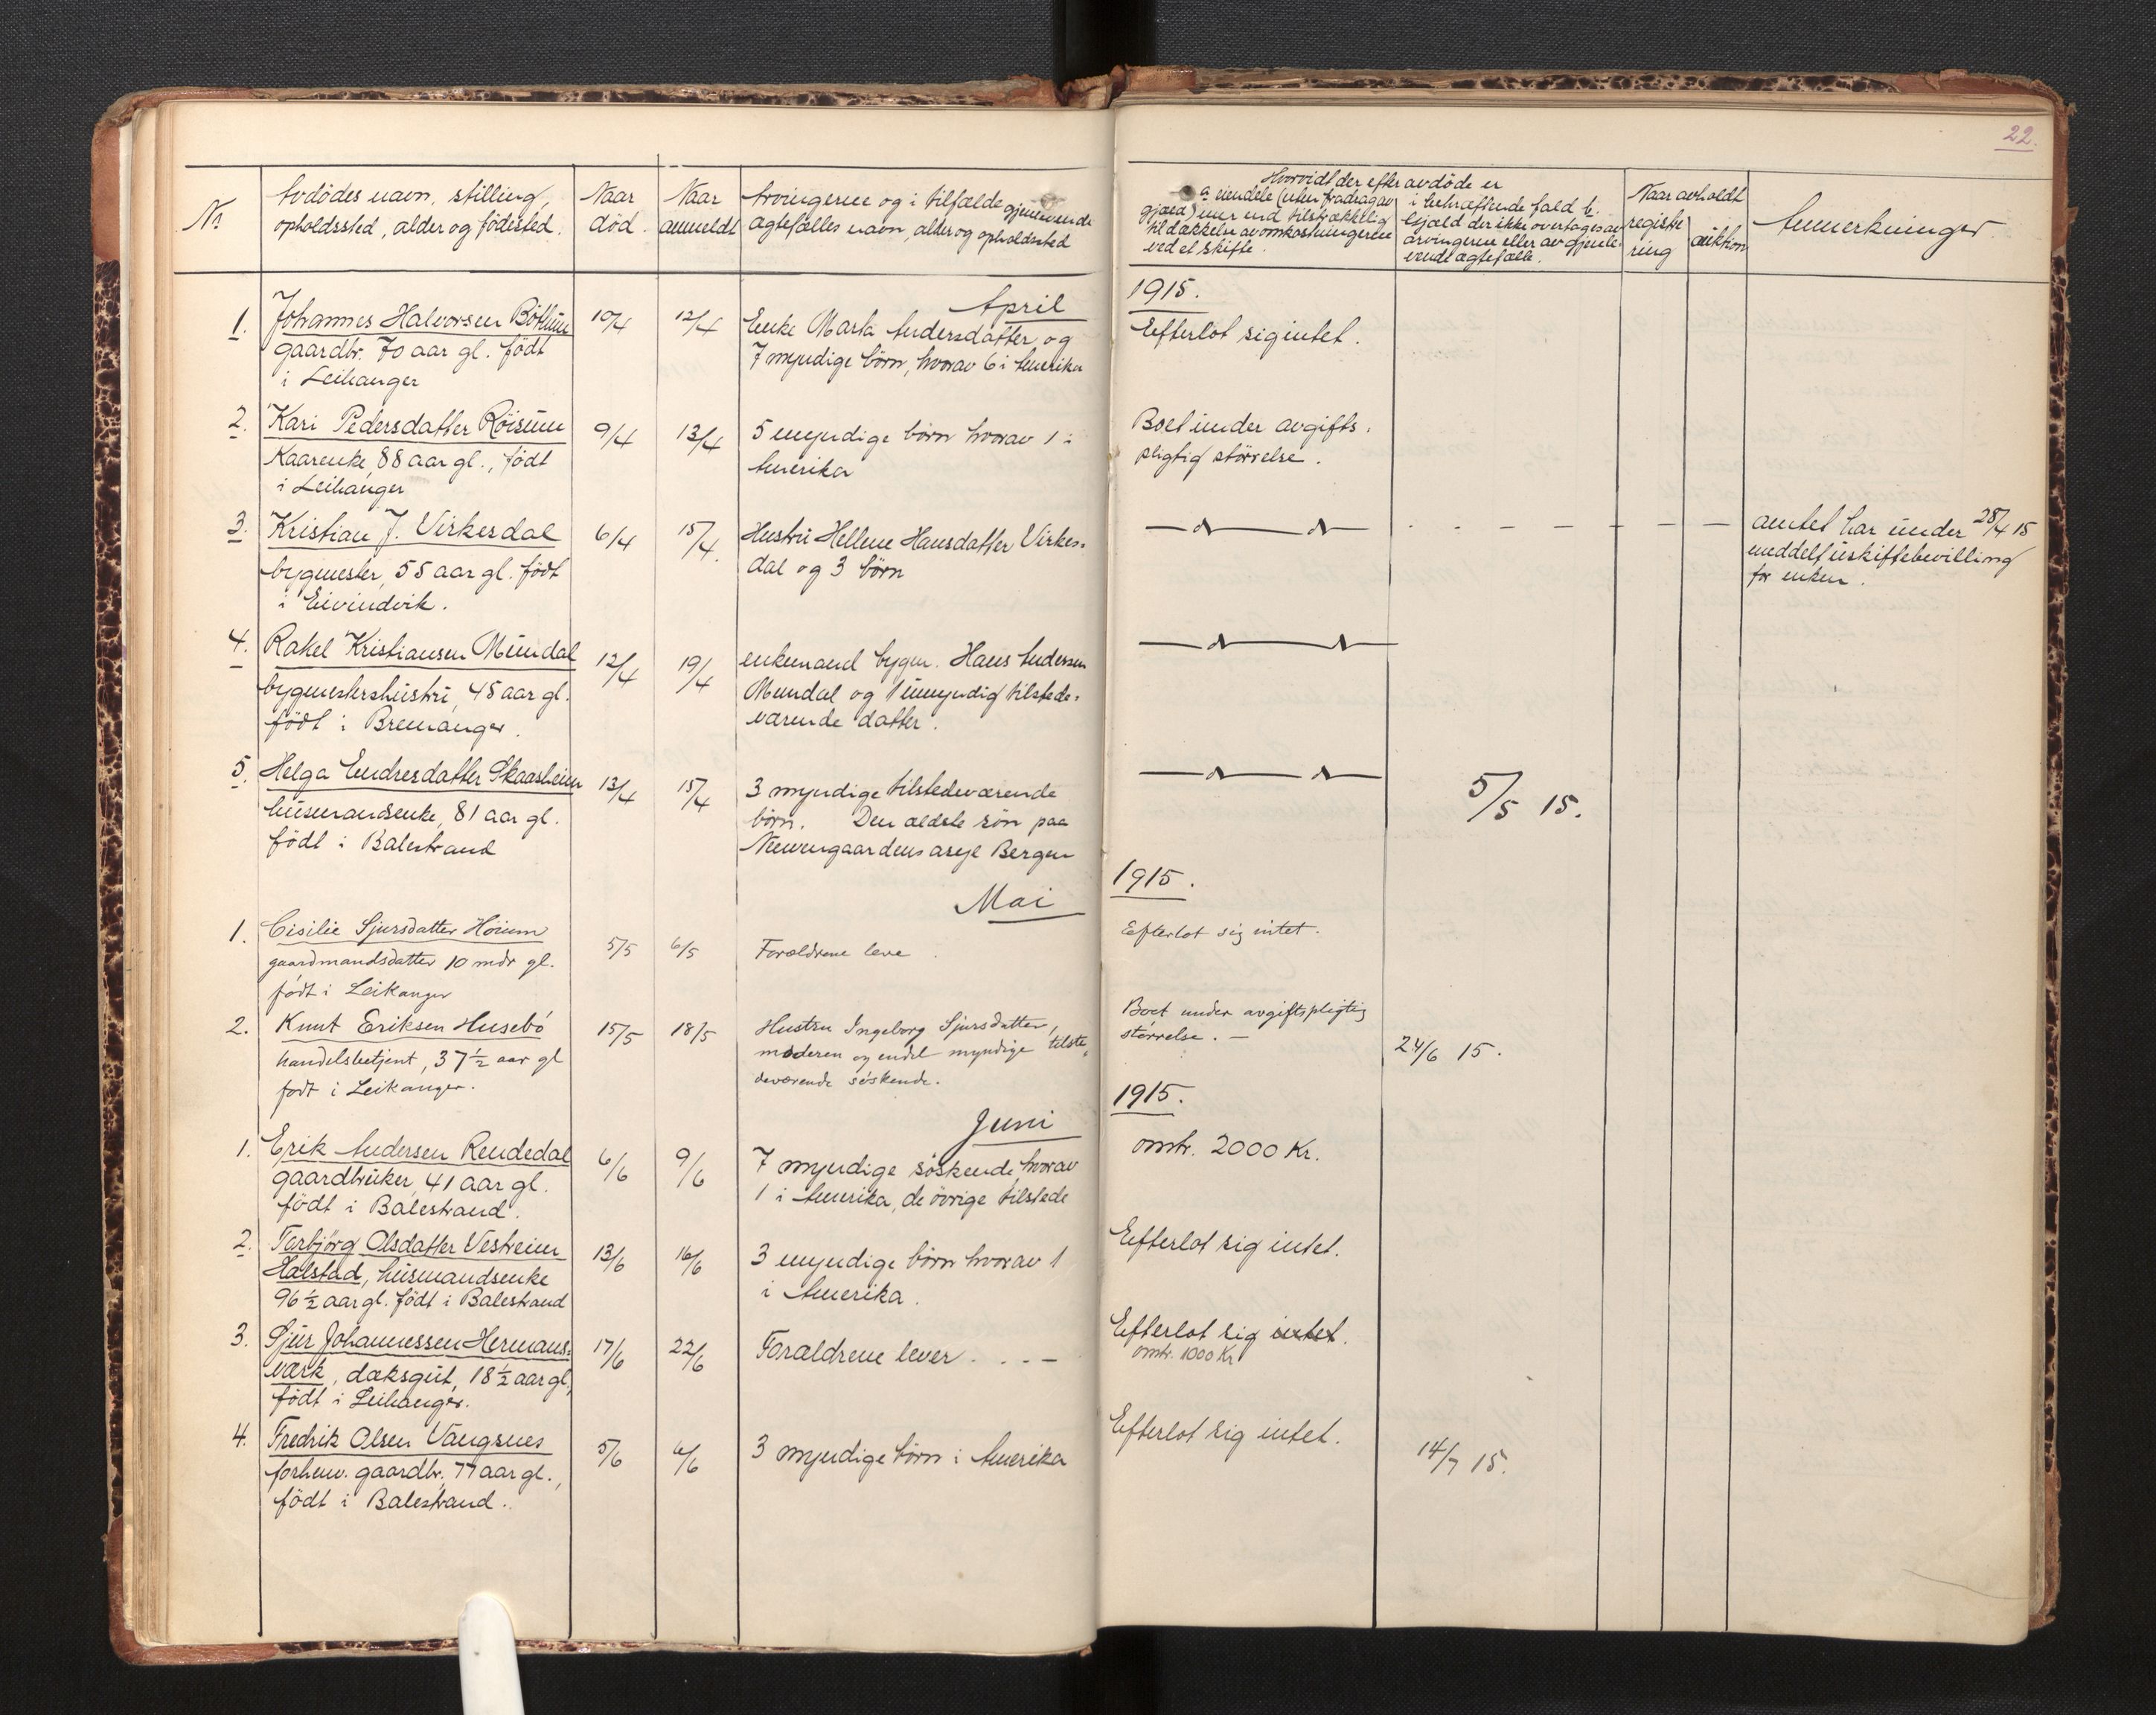 22.
Nr
Avdödes navn, stilling,
opholdssted, alder og födested.
Naar
död.
Naar
anmeldt
Arvingerne og i tilfælde gjenlevende
ægtefælles navn, alder og opholdssted
Hvorvidt der efter avdöde er
a eiendele (uten fradrag av
gjæld) mer end tilstrækkelig
til dækkelse av omkostningerne
ved et skifte.
i bekræftende fald b.
Gjæld der ikke overtages av
arvingerne eller av gjenle-
vende ægtefælle.
Naar avholdt
registe
ring
auktion
Anmerkninger.
April
1915.
1.
Johannes Halvorsen Böthun
gaardbr. 70 aar gl. födt
i Leikanger
10/4
12/4
Enke Marta Andersdatter og
7 myndige börn, hvorav 6 i Amerika
Efterlot sig intet.
2.
Kari Pedersdatter Röisum
Kaarenke, 88 aar gl., födt
i Leikanger
9/4
13/4
5 myndige börn hvorav 1 i
Amerika
Boet under avgifts-
pligtig störrelse.
3.
Kristian J. Virkesdal
bygmester, 55 aar gl. födt
i Eivindvik.
6/4
15/4.
Hustru Hellene Hansdatter Virkes-
dal og 3 börn
— „ — „ — - - - - - — —
amtet har under 28/4 15
meddelt uskiftebevilling
for enken.
4.
Rakel Kristiansen Mundal
bygmestershustru, 45 aar gl.
födt i Bremanger.
12/4
19/4
enkemand bygm. Hans Andersen
Mundal og 1 umyndig tilstede-
værende datter.
— „ — „ —
5.
Helga Endresdatter Skaasheim
husmandsenke, 81 aar gl.
födt i Balestrand
13/4
15/4
3 myndige tilstedeværende
börn. Den ældste sön paa
Neevengaardens asyl Bergen
— „ — „ —
5/5 15.
Mai
1915.
1.
Cisilie Sjursdatter Höium
gaardmandsdatter 10 mdr gl.
födt i Leikanger
5/5
6/5
Forældrene leve.
Efterlot sig intet.
2.
Knut Eriksen Husebö
handelsbetjent, 37 1/2 aar gl
födt i Leikanger.
15/5
18/5
Hustru Ingeborg Sjursdatter,
moderen og endel myndige tilste-
deværende söskende.
Boet under avgiftspligtig
störrelse. —
24/6 15.
Juni
1915.
1.
Erik Andersen Rendedal
gaardbruker, 41 aar gl.
födt i Balestrand.
6/6
9/6
7 myndige söskende, hvorav
1 i Amerika, de övrige tilstede
omtr. 2000 Kr.
2.
Torbjörg Olsdatter Vestreim
Halstad, husmandsenke
96 1/2 aar gl. födt i Balestrand
13/6
16/6
3 myndige börn hvorav 1
i Amerika.
Efterlot sig intet.
3.
Sjur Johannessen Hermans-
værk, dæksgut, 18 1/2 aar gl,
födt i Leikanger.
17/6
22/6
Forældrene lever. . . —
Efterlot sig intet.
omtr. 1000 Kr
4.
Fredrik Olsen Vangsnes
forhenv. gaardbr. 77 aar gl.,
födt i Balestrand.
5/6
6/6
3 myndige börn i Amerika
Efterlot sig intet.
14/7 15.